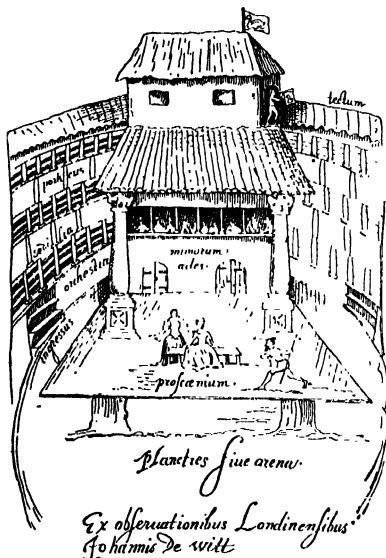 tectum
porticus
sedilia
orchestra
mimorum
ædes.
ingressus
proscænium.
Planities siue arena.
Ex obseruationibus Londinensibus
Johannis De Witt